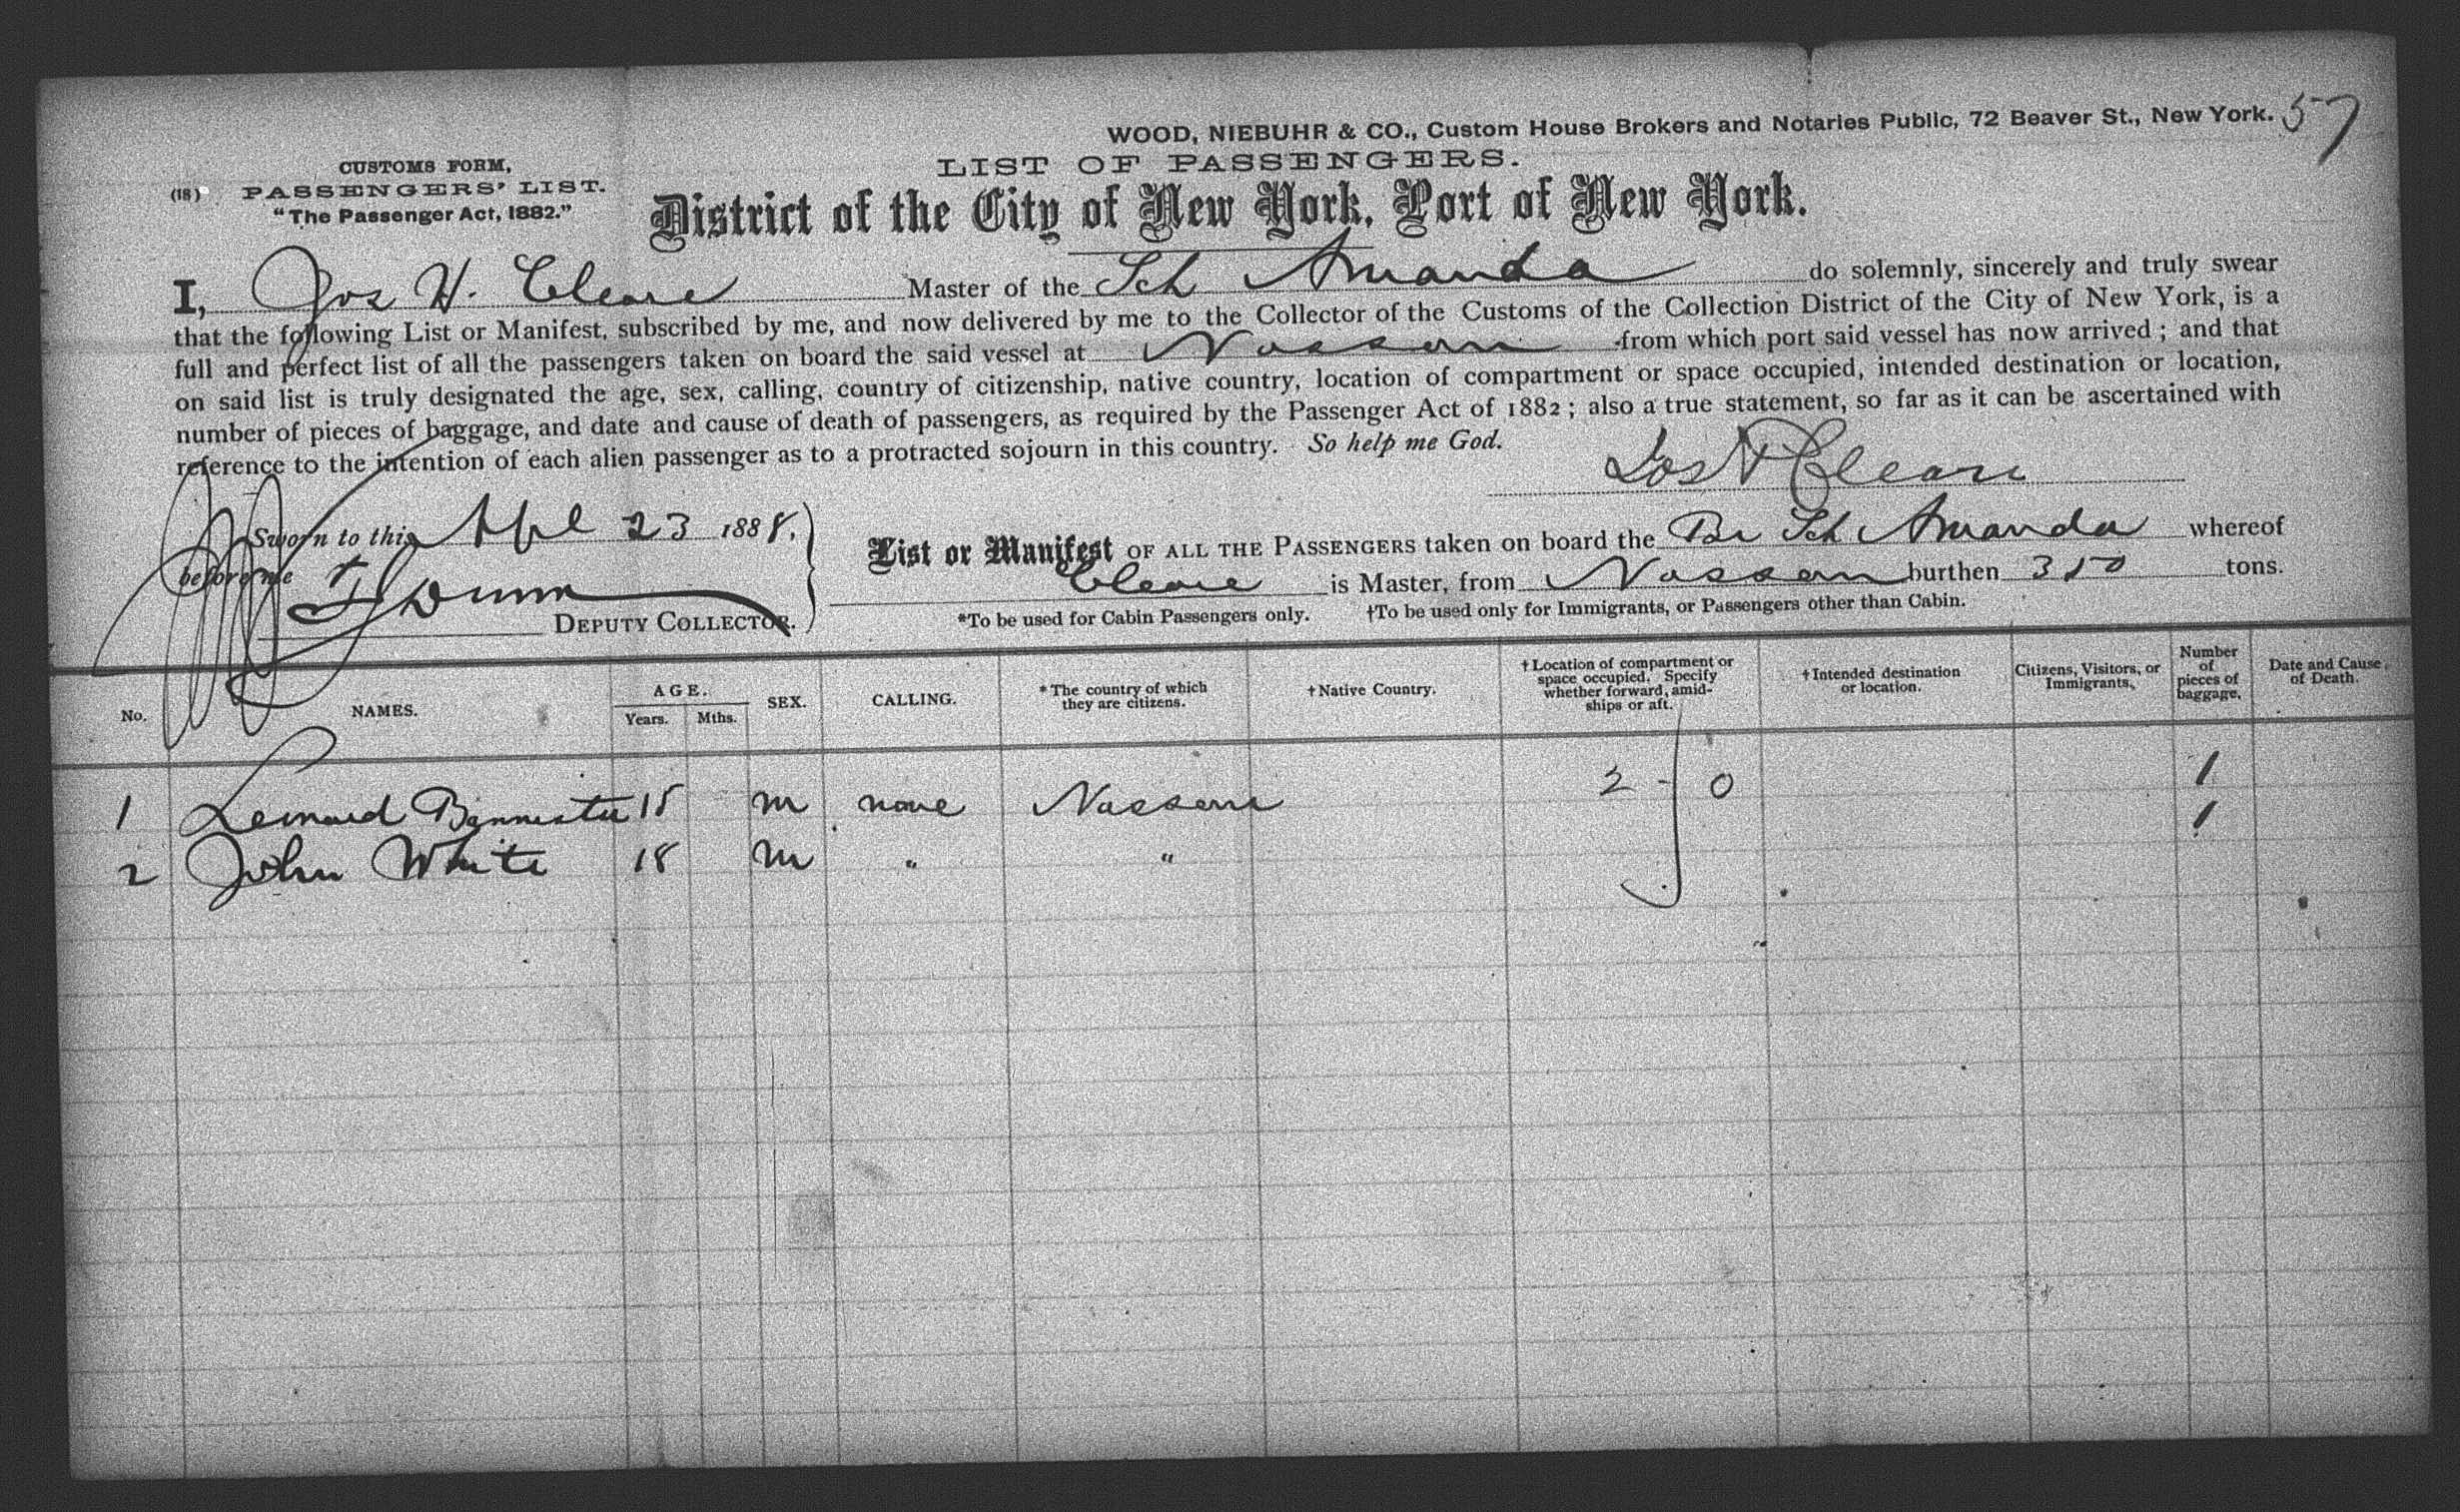 WOOD, NIEBUHR & CO., Custom House Brokers and Notaries Public, 72 Beaver St., New York. 57
LIST OF PASSENGERS.
CUSTOMS FORM,
(18) PASSENGERS' LIST.
"The Passenger Act, 1882."
District of the City of New York, Port of New York.
I, Jos H. Cleare Master of the Sch Amanda do solemnly, sincerely and truly swear
that the following List or Manifest, subscribed by me, and now delivered by me to the Collector of the Customs of the Collection District of the City of New York, is a
full and perfect list of all the passengers taken on board the said vessel at Nassau from which port said vessel has now arrived; and that
on said list is truly designated the age, sex, calling, country of citizenship, native country, location of compartment or space occupied, intended destination or location,
number of pieces of baggage, and date and cause of death of passengers, as required by the Passenger Act of 1882; also a true statement, so far as it can be ascertained with
reference to the intention of each alien passenger as to a protracted sojourn in this country. So help me God.
Jos H Cleare
Sworn to this Apl 23 1888,
before me
Dunn
DEPUTY COLLECTOR.
List or Manifest OF ALL THE PASSENGERS taken on board the Br Sch Amanda whereof
Cleare is Master, from Nassau burthen 350 tons.
*To be used for Cabin Passengers only. †To be used only for Immigrants, or Passengers other than Cabin.
No. NAMES. AGE. Years. Mths. SEX. CALLING. *The country of which they are citizens. †Native Country. †Location of compartment or space occupied. Specify whether forward, amidships or aft. †Intended destination or location. Citizens, Visitors, or Immigrants. Number of pieces of baggage. Date and Cause of Death.
1 Leonard Bannister 18 m none Nassau 2 - 0 1
2 John White 18 m " " 1